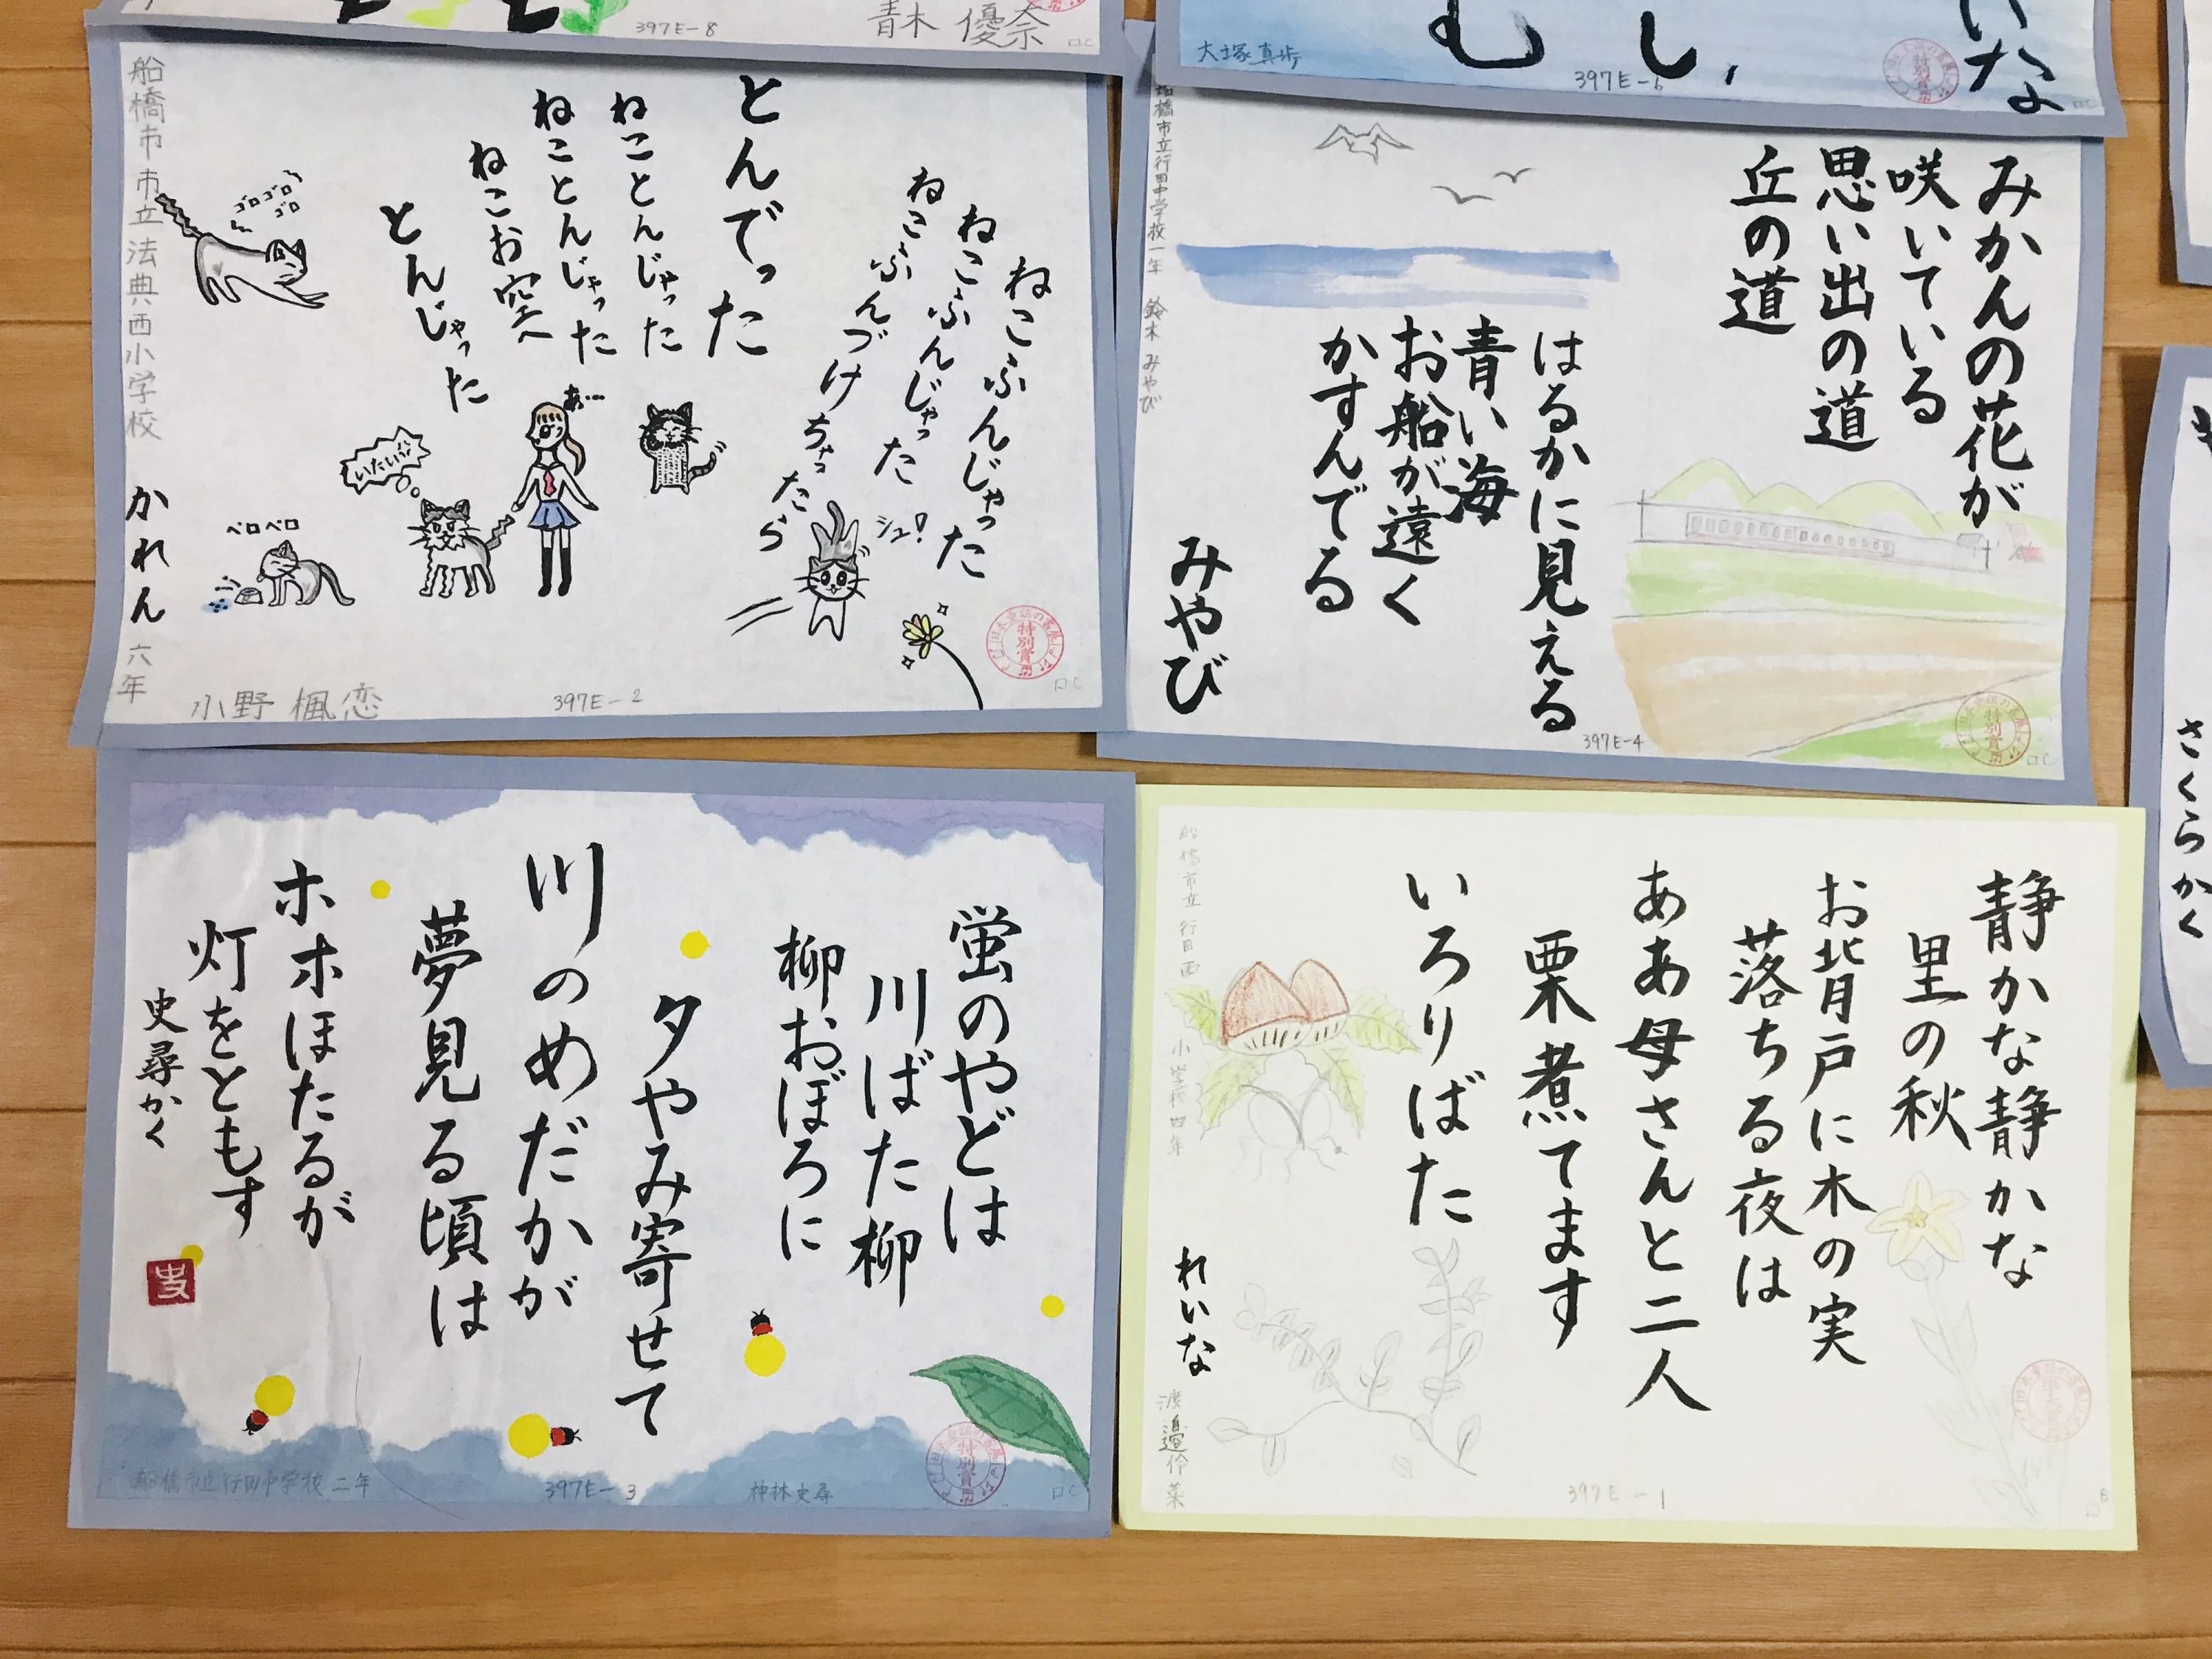 397E-8
青木 優奈
いな
むし、
大塚真歩
397E-6
特別賞
ねこふんじゃった
ねこふんじゃった
ねこふんづけちゃったら
とんでった
ねことんじゃった
ねことんじゃった
ねこお空へ
とんじゃった
シュ!
あ…
いたい…
ペロペロ
ゴロゴロ
ゴロ
船橋市市立法典西小学校 かれん 六年
小野 楓恋
397E-2
特別賞
みかんの花が
咲いている
思い出の道
丘の道
はるかに見える
青い海
お船が遠く
かすんでる
みやび
船橋市立行田中学校一年 鈴木みやび
397E-4
特別賞
さくらかく
蛍のやどは
川ばた柳
柳おぼろに
夕やみ寄せて
川のめだかが
夢見る頃は
ホホほたるが
灯をともす
史尋かく
史
船橋市立行田中学校二年
397E-3
神林史尋
特別賞
静かな静かな
里の秋
お背戸に木の実
落ちる夜は
ああ母さんと二人
栗煮てます
いろりばた
れいな
船橋市立 行田西 小学校 四年
渡邉伶菜
397E-1